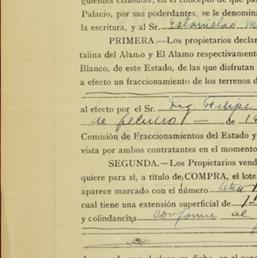 guientes cláusulas, en el concepto de que pa
Palacio, por sus poderdantes, se le denomina
la escritura, y al Sr. Estanislao M
PRIMERA.—Los propietarios declara
talina del Alamo y El Alamo respectivamente
Blanco, de este Estado, de las que disfrutan
a efecto un fraccionamiento de los terrenos d
al efecto por el Sr. Ing. Felipe
de — de 19
Comisión de Fraccionamientos del Estado y
vista por ambos contratantes en el momento
SEGUNDA.—Los Propietarios vend
quiere para sí, a título de COMPRA, el lote
aparece marcado con el número
cual tiene una extensión superficial de
y colindancias, conforme al